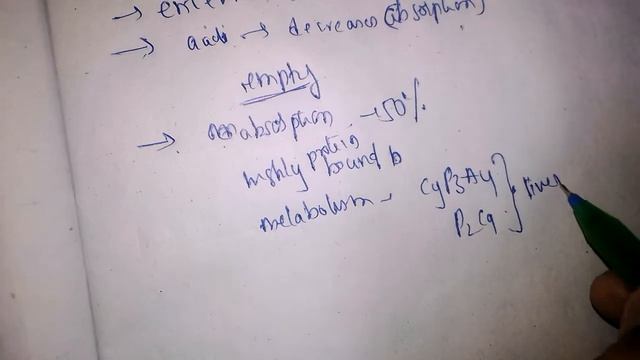 →
→ acids → decreases (absorption)
empty
→ absorption -50%
highly protein
bound
metabolism - CYP3A4 } liver
P2C9